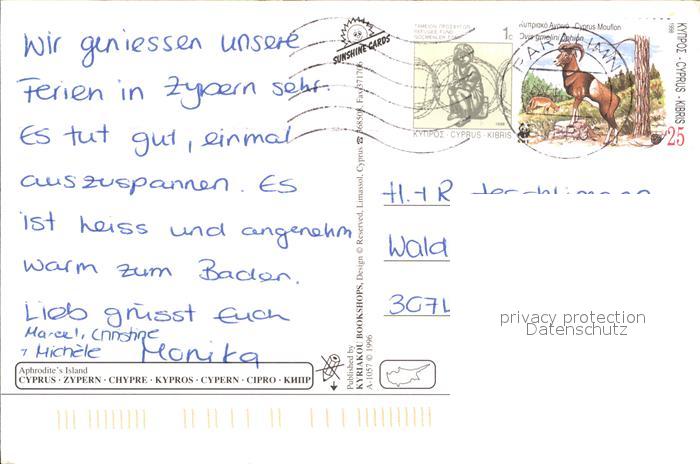 Wir geniessen unsere
Ferien in Zypern sehr.
Es tut gut, einmal
auszuspannen. Es
ist heiss und angenehm
warm zum Baden.
Lieb grüsst Euch
Marcel, Christine
Michèle Monika
Aphrodite's Island
CYPRUS · ZYPERN · CHYPRE · KYPROS · CYPERN · CIPRO · КИПР
SUNSHINE CARDS
Published by
KYRIAKOU BOOKSHOPS, Design © Reserved, Limassol, Cyprus ☎ 368508, Fax 371706
A-1057 © 1996
ΤΑΜΕΙΟΝ ΠΡΟΣΦΥΓΩΝ
REFUGEE FUND
GÖÇMENLER FONU
1c
ΚΥΠΡΟΣ · CYPRUS · KIBRIS
1998
Κυπριακό Αγρινό - Cyprus Mouflon
Ovis gmelini ophion
ΚΥΠΡΟΣ - CYPRUS - KIBRIS
1998
25
H. + R
Wald
307
privacy protection
Datenschutz